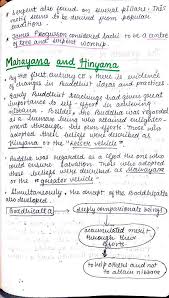 • Serpent also found on several pillars. This
motif seems to be derived from popular
traditions.
• James Fergusson considered Sanchi to be a centre
of tree and serpent worship.
Mahayana and Hinyana
• By the first century CE, there is evidence
of changes in Buddhist ideas and practices.
• Early Buddhist teachings had given great
importance to self-effort in achieving
nibbana. Besides, the Buddha was regarded
as a human being who attained enlighten-
ment through his own efforts. Those who
adopted these beliefs were described as
Hinyana or the "lesser vehicle".
• Buddha was regarded as a God the one who
could ensure salvation. Those who adopted
these beliefs were described as Mahayana
or the "greater vehicle".
• Simultaneously, the concept of the Bodhisatta
also developed.
Bodhisatta
deeply compassionate beings
accumulated merit
through their
efforts
to help others and not
to attain nibbana